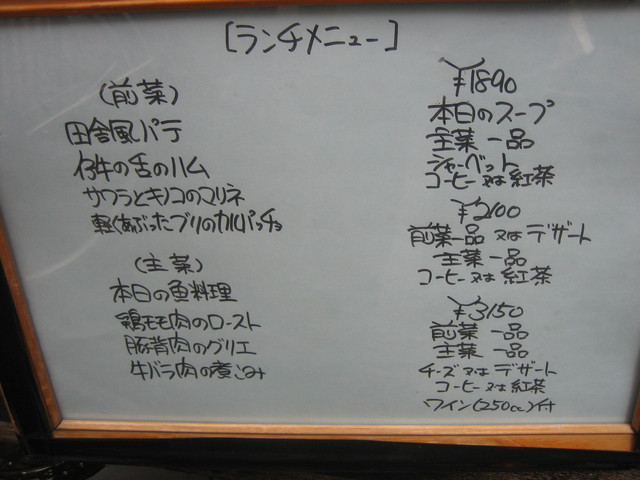 [ランチメニュー]
(前菜)
田舎風パテ
仔牛の舌のハム
サワラとキノコのマリネ
軽くあぶったブリのカルパッチョ
(主菜)
本日の魚料理
鶏モモ肉のロースト
豚背肉のグリエ
牛バラ肉の煮こみ
¥1890
本日のスープ
主菜一品
シャーベット
コーヒー又は紅茶
¥2100
前菜一品 又は デザート
主菜一品
コーヒー又は紅茶
¥3150
前菜一品
主菜一品
チーズ又はデザート
コーヒー又は紅茶
ワイン(250cc)付